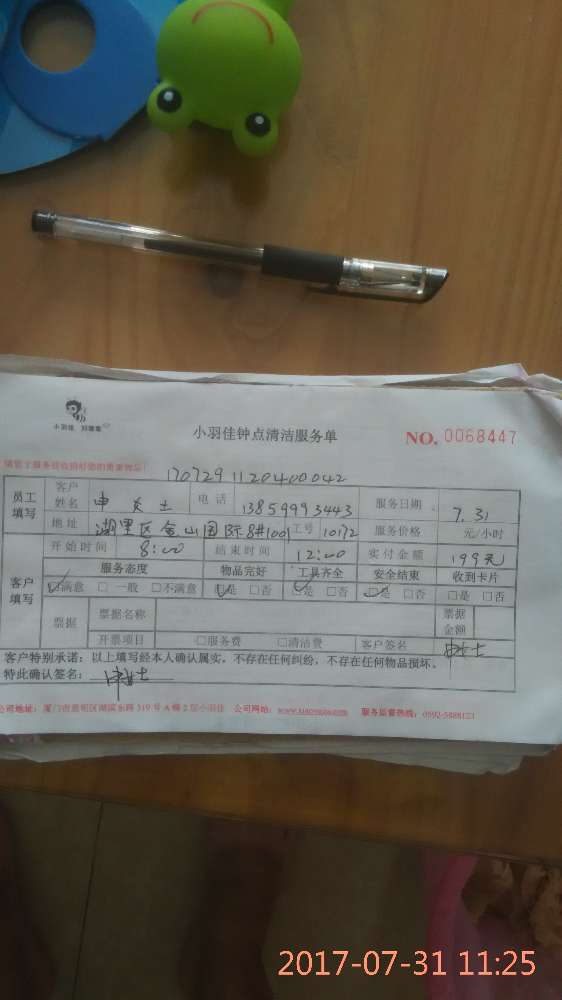 小羽佳
小羽佳钟点清洁服务单
NO. 0068447
170729112040042
员工填写
客户姓名
申女士
电话
13859993443
服务日期
7.31
地址
湖里区金山国际8#1001
工号
10172
服务价格
元/小时
客户填写
开始时间
8:00
结束时间
12:00
实付金额
199元
服务态度 物品完好 工具齐全 安全结束 收到卡片
☑满意 □一般 □不满意 ☑是 □否 ☑是 □否 ☑是 □否 □是 □否
票据
票据名称
票据金额
开票项目 □服务费 □清洁费 客户签名
申女士
客户特别承诺:以上填写经本人确认属实,不存在任何纠纷,不存在任何物品损坏。
特此确认签名: 申女士
公司地址:厦门市思明区湖滨东路319号A幢2层小羽佳 公司网站: 服务监督热线:
2017-07-31 11:25